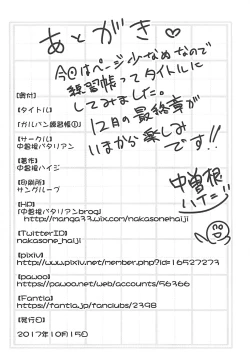 あとがき♡
今回はページ少なめなので
練習帳ってタイトルに
してみました。
12月の最終章が
いまから楽しみ
です!!
中曽根
ハイジ
【奥付】
【タイトル】
「ガルパン練習帳①」
【サークル】
中曽根バタリアン
【著作】
中曽根ハイジ
【印刷所】
サングループ
【HP】
「中曽根バタリアンbroq」
http://nanga33.wix.com/nakasonehaiji
【TwitterID】
nakasone_haiji
【pixiv】
http://www.pixiv.net/member.php?id=16527273
【pawoo】
https://pawoo.net/web/accounts/56366
【Fantia】
https://fantia.jp/fanclubs/2398
【発行日】
2017年10月15日